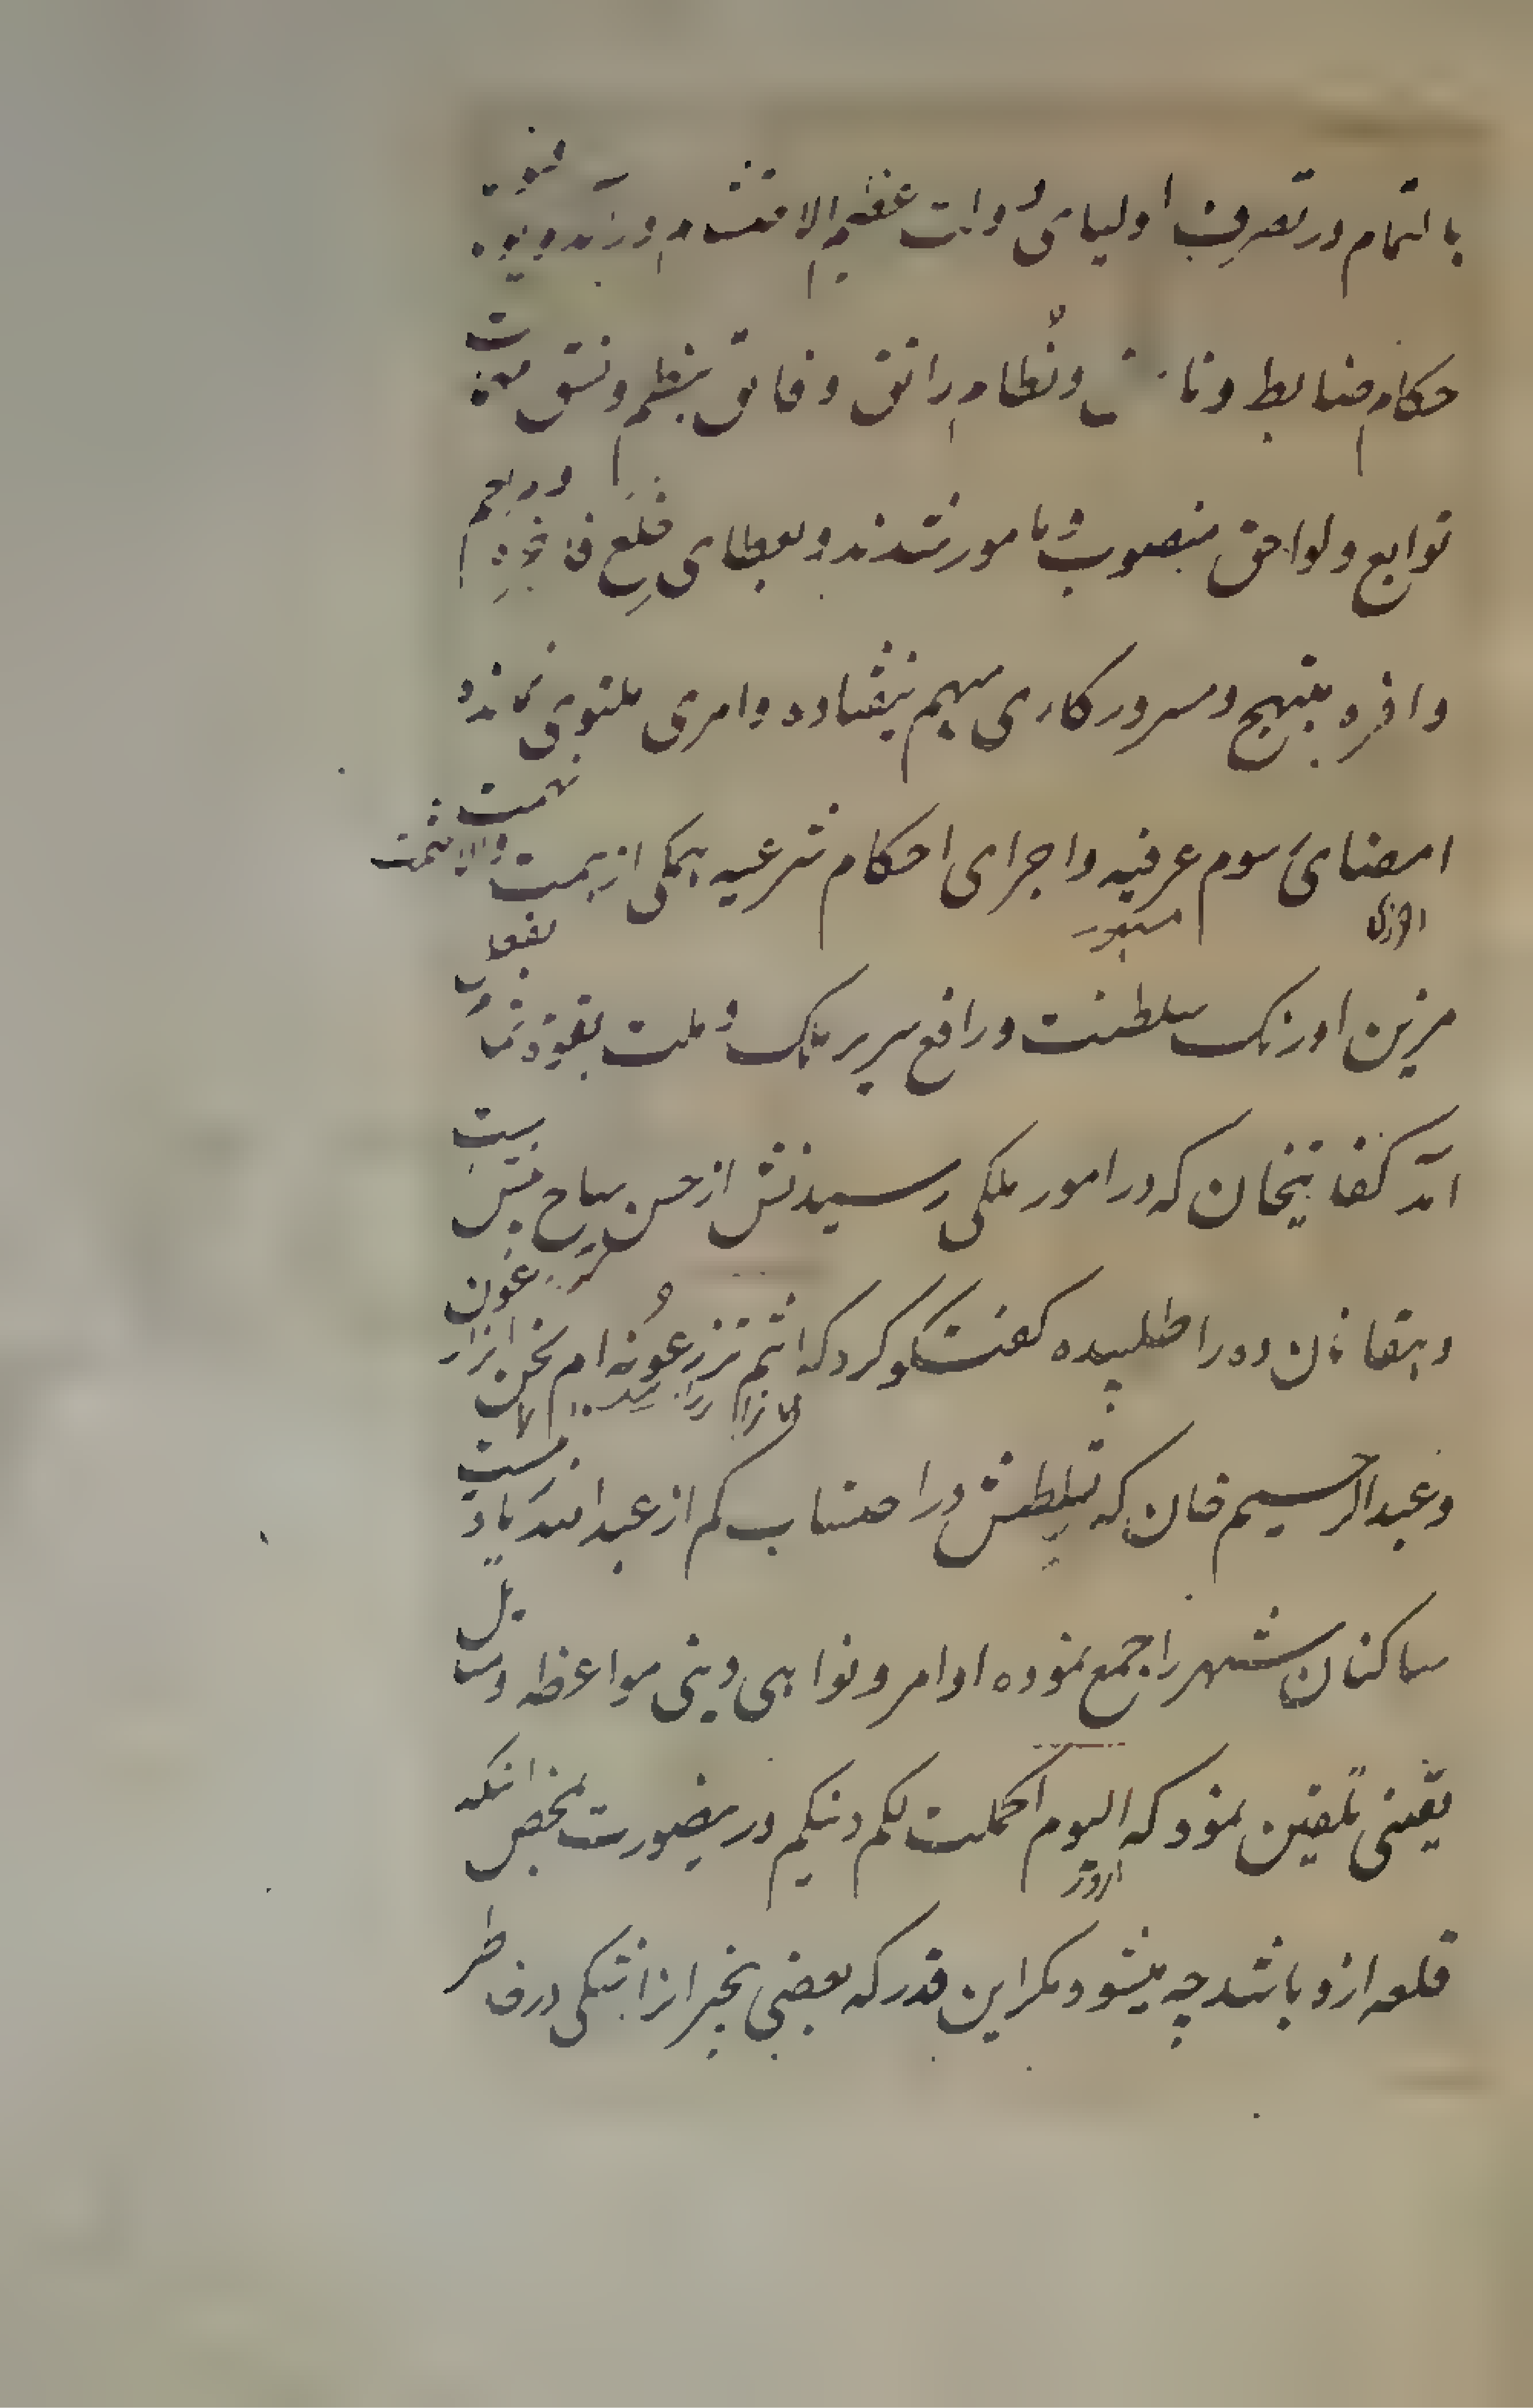 بالتمام در تصرف اولیای دولت عظیم الاحتشام در آمده بود
حکام ضابط و نا و نظام راتق و فاتق بنظم و نسق
توابع و لواحق منصوب و مامور شدند و بعطای خلع فاخره و دراهم
وافره مبتهج و مسرور کاری مبهم نیفتاده و امری ملتوی نمانده
امضای رسوم عرفیه و اجرای احکام شرعیه همگی از همت والا نهمت
مزین اورنک سلطنت و رافع سریر ملک و ملت بقوة بفعل
آمد کفایتخان که در امور ملکی رسیدنش از حسن سیاح بیش است
دهقانان ده را طلبیده کفتکو کرد که انتم تزرعونه ام نحن الزارعون
و عبدالرحیم خان که تسلطش در احتساب کم از عبدالله یاد نیست
ساکنان شهر را جمع نموده اوامر و نواهی دینی مواعظه و مسایل
یقینی تلقین نمود که الیوم اکملت لکم دینکم درینصورت بمحض انکه
قلعه ازو باشد چه میشود مکر این قدر که بعضی بخبر از ابتکی در خاطر